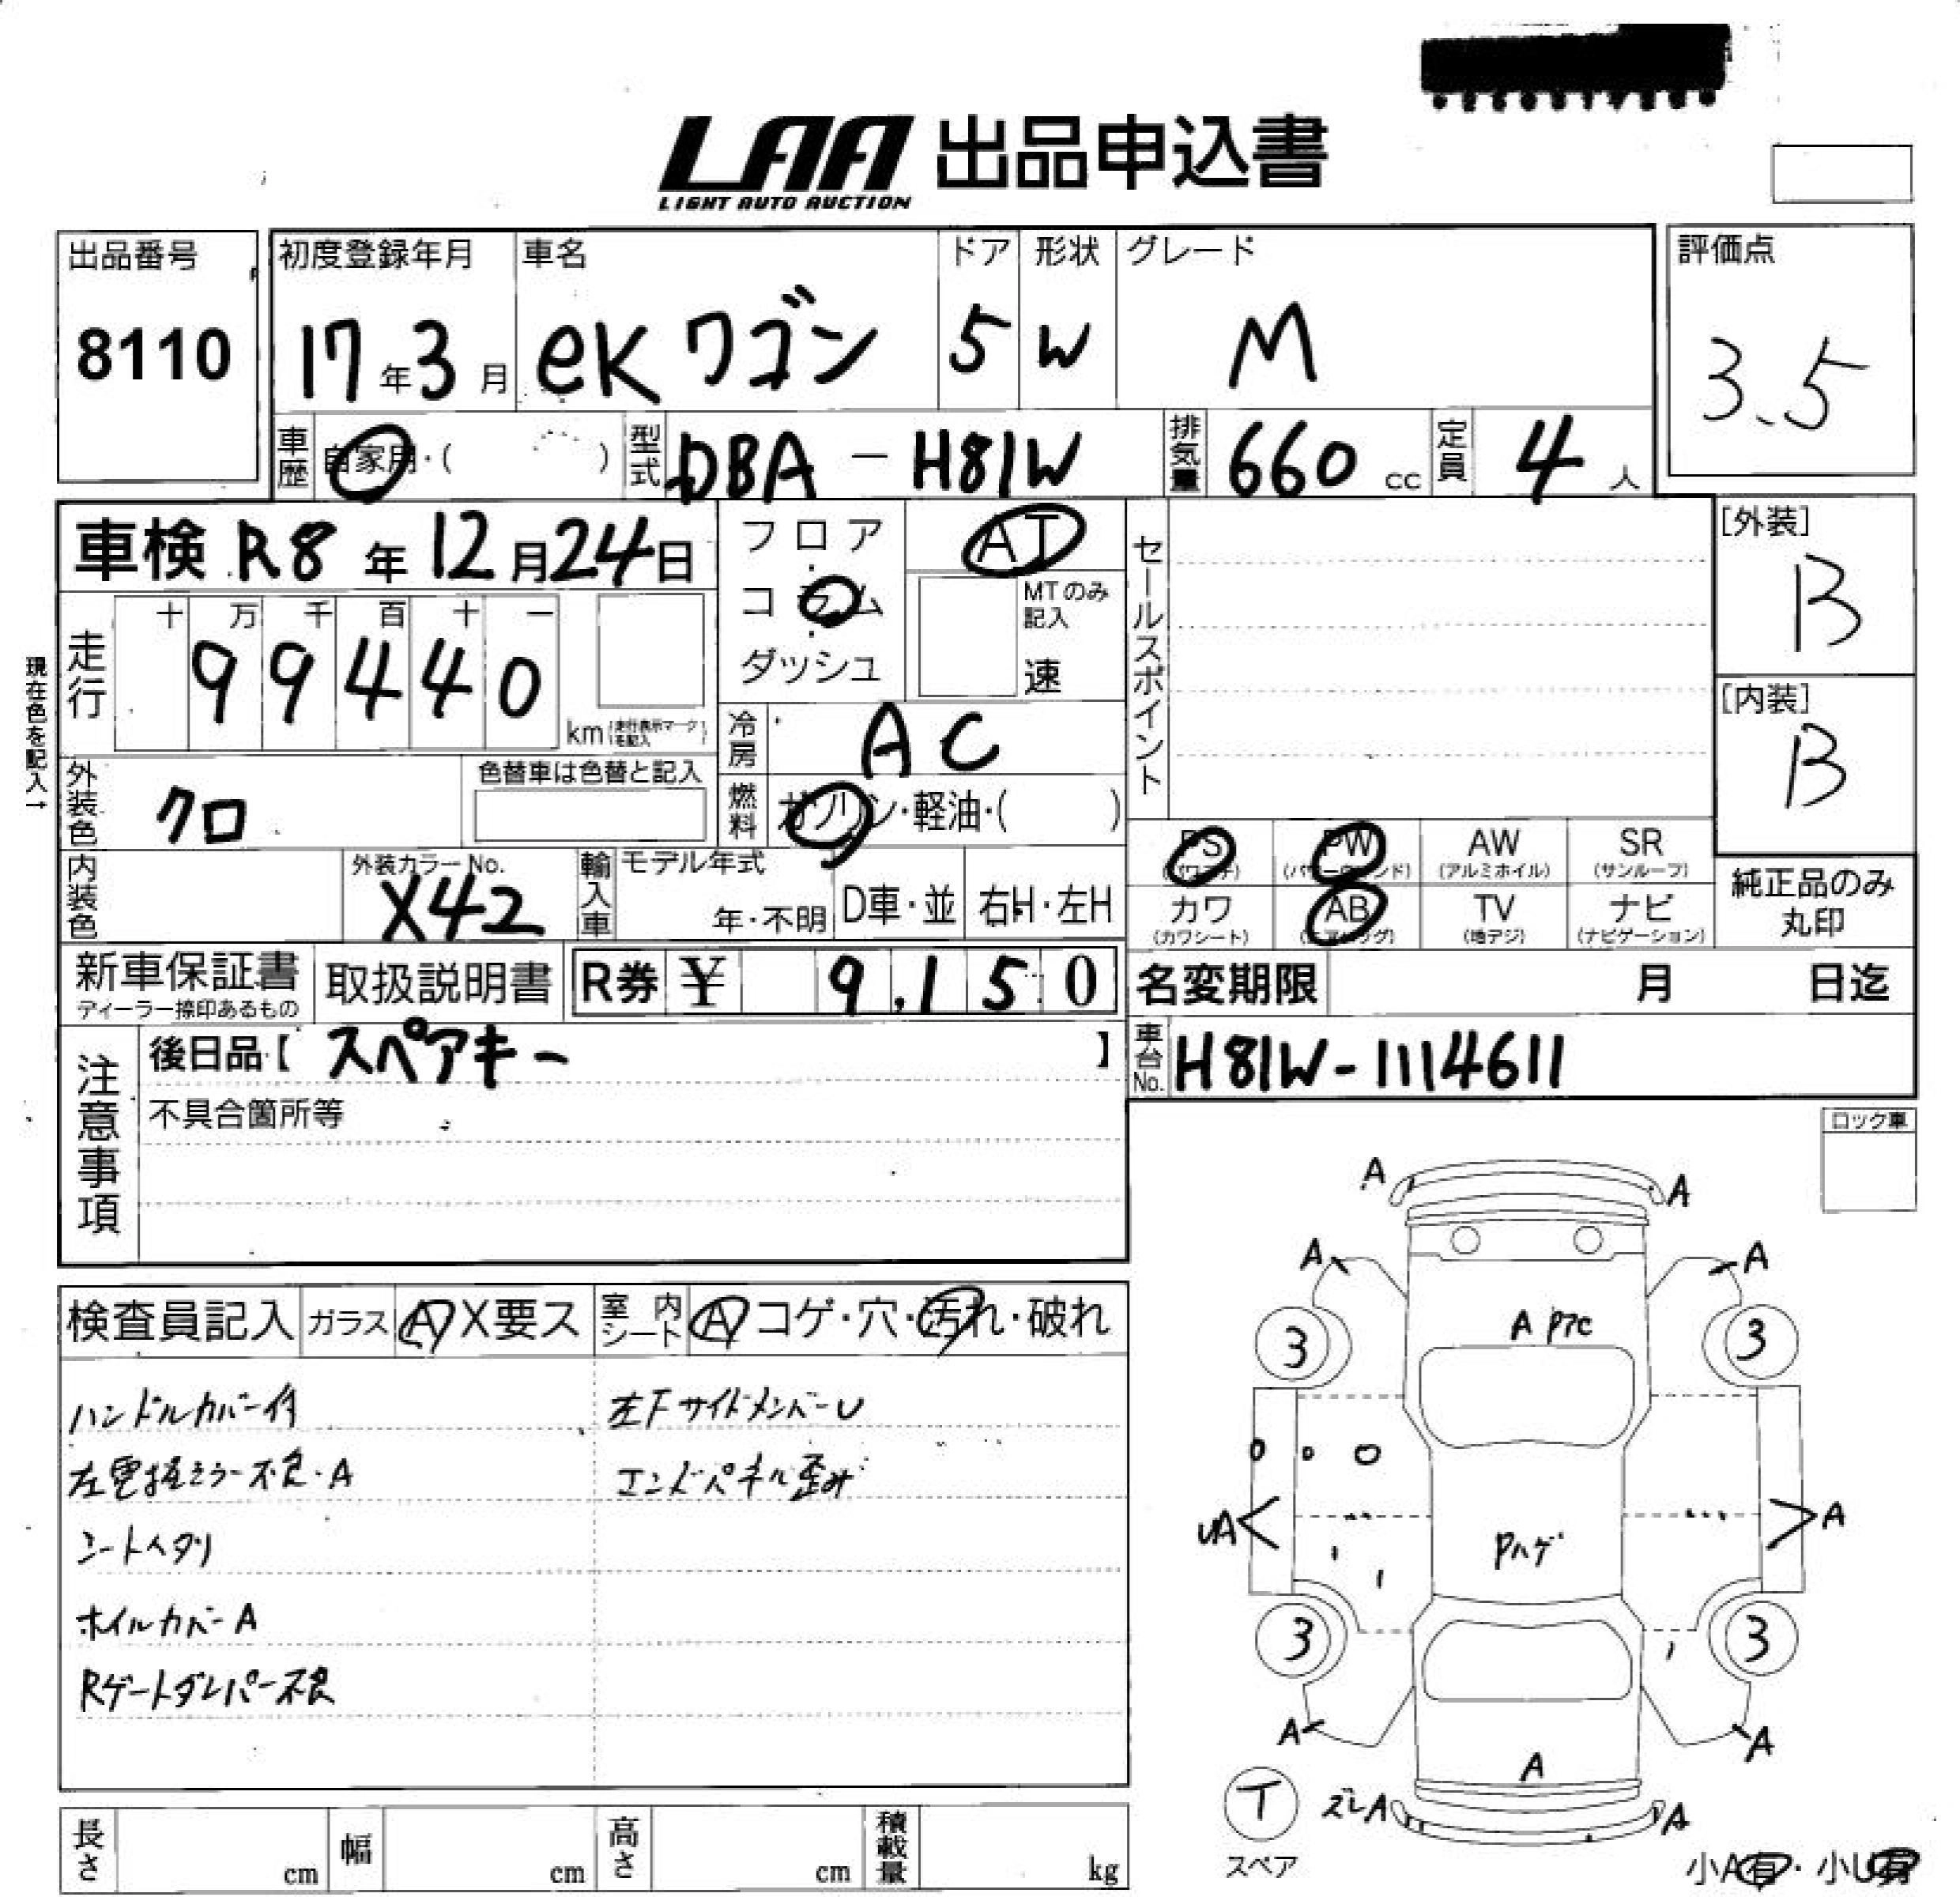 LAA 出品申込書
LIGHT AUTO AUCTION
出品番号
8110
初度登録年月
17年3月
車名
eKワゴン
ドア
5
形状
W
グレード
M
評価点
3.5
車歴 自家用・( )
型式 DBA - H81W
排気量 660 cc
定員 4 人
車検 R8年12月24日
フロア
コラム
ダッシュ
AT
MTのみ記入
速
セールスポイント
[外装]
B
[内装]
B
現在色を記入→
走行
十 万 千 百 十 一
9 9 4 4 0
km (走行表示マークを記入)
冷房 AC
外装色 クロ
色替車は色替と記入
燃料 ガソリン・軽油・( )
内装色
外装カラーNo.
X42
輸入車
モデル年式
年・不明
D車・並
右H・左H
PS
(パワステ)
PW
(パワーウインド)
AW
(アルミホイル)
SR
(サンルーフ)
カワ
(カワシート)
AB
(エアバッグ)
TV
(地デジ)
ナビ
(ナビゲーション)
純正品のみ
丸印
新車保証書
ディーラー捺印あるもの
取扱説明書
R券 ¥ 9,150
名変期限 月 日迄
注意事項
後日品【 スペアキー 】
不具合箇所等
車台No. H81W-1114611
ロック車
検査員記入
ガラス A X要ス
室内シート A コゲ・穴・汚れ・破れ
ハンドルカバー付
左電格ミラー不良・A
シートヘタリ
ホイルカバーA
Rゲートダンパー不良
左FサイドメンバーU
エンドパネル歪み
A A
A A
3 A P7C 3
UA A
Pハゲ
3 3
A A
A
T
スペア
ズレA A
小A有・小U有
長さ cm
幅 cm
高さ cm
積載量 kg